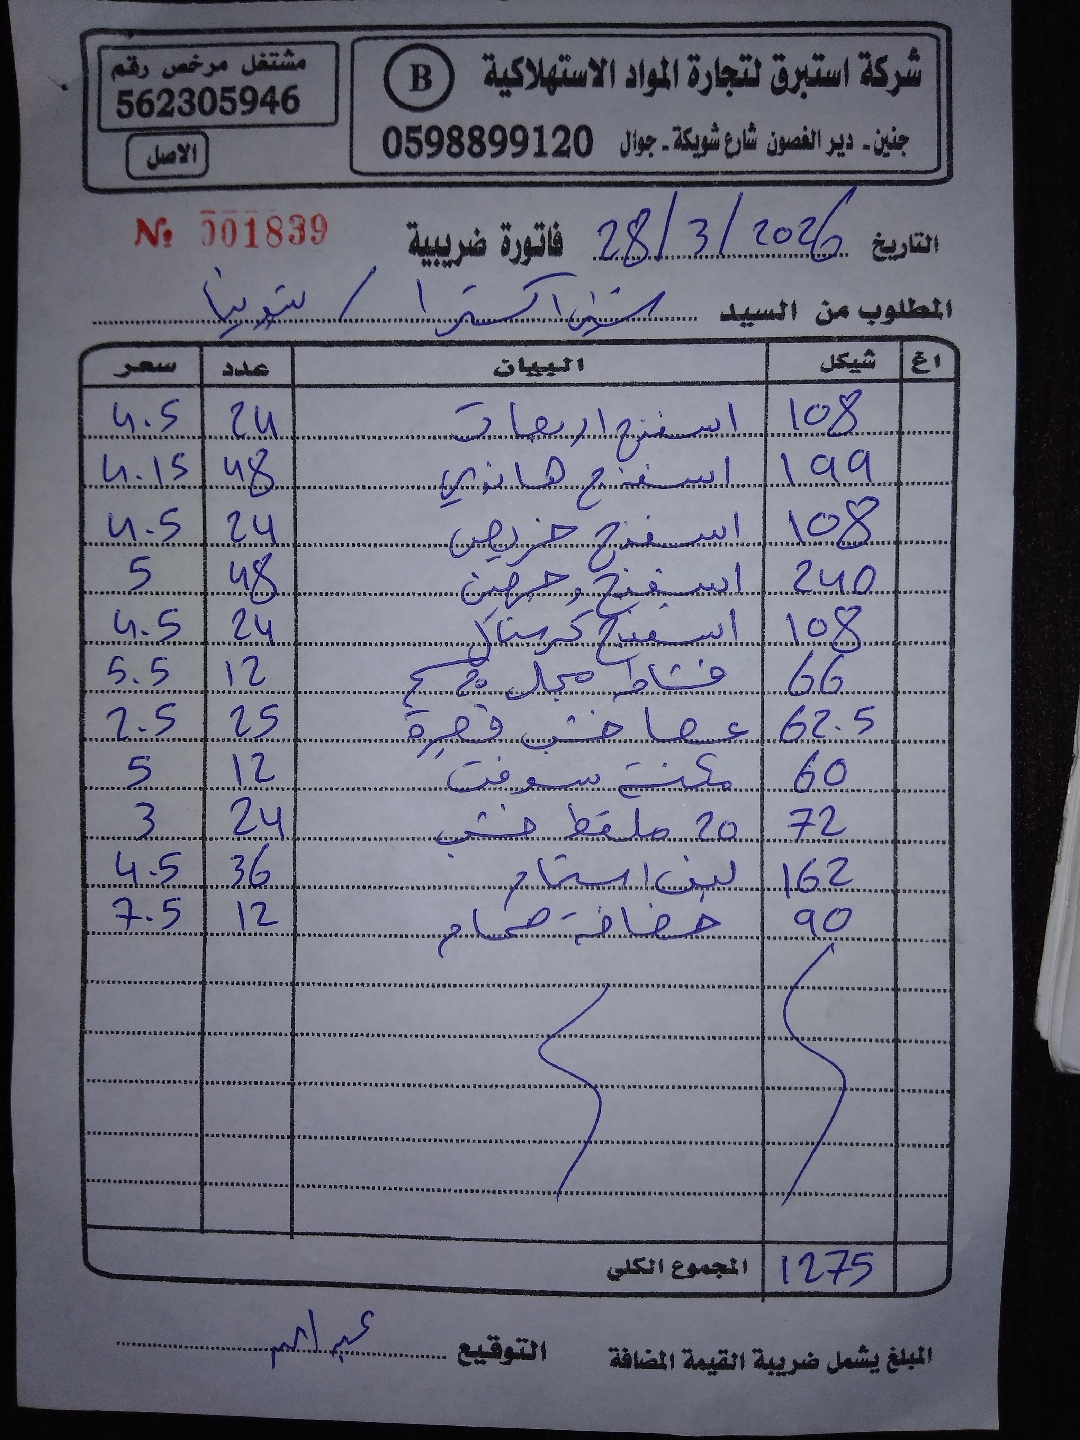 شركة استبرق لتجارة المواد الاستهلاكية B
جنين - دير الغصون شارع شويكة - جوال 0598899120
مشتغل مرخص رقم
562305946
الاصل
التاريخ 28/3/2026 فاتورة ضريبية № 001839
المطلوب من السيد اكسترا /
اغ شيكل البيان عدد سعر
108 اسفنج اربعات 24 4.5
199 اسفنج هاندي 48 4.15
108 اسفنج 24 4.5
240 اسفنج وجهين 48 5
108 اسفنج كرستال 24 4.5
66 قشاط مجل 12 5.5
62.5 عصا خشب قصيرة 25 2.5
60 مكنسة سوفت 12 5
72 20 ملقط خشب 24 3
162 ليف استحمام 36 4.5
90 حمام 12 7.5
المجموع الكلي 1275
المبلغ يشمل ضريبة القيمة المضافة التوقيع